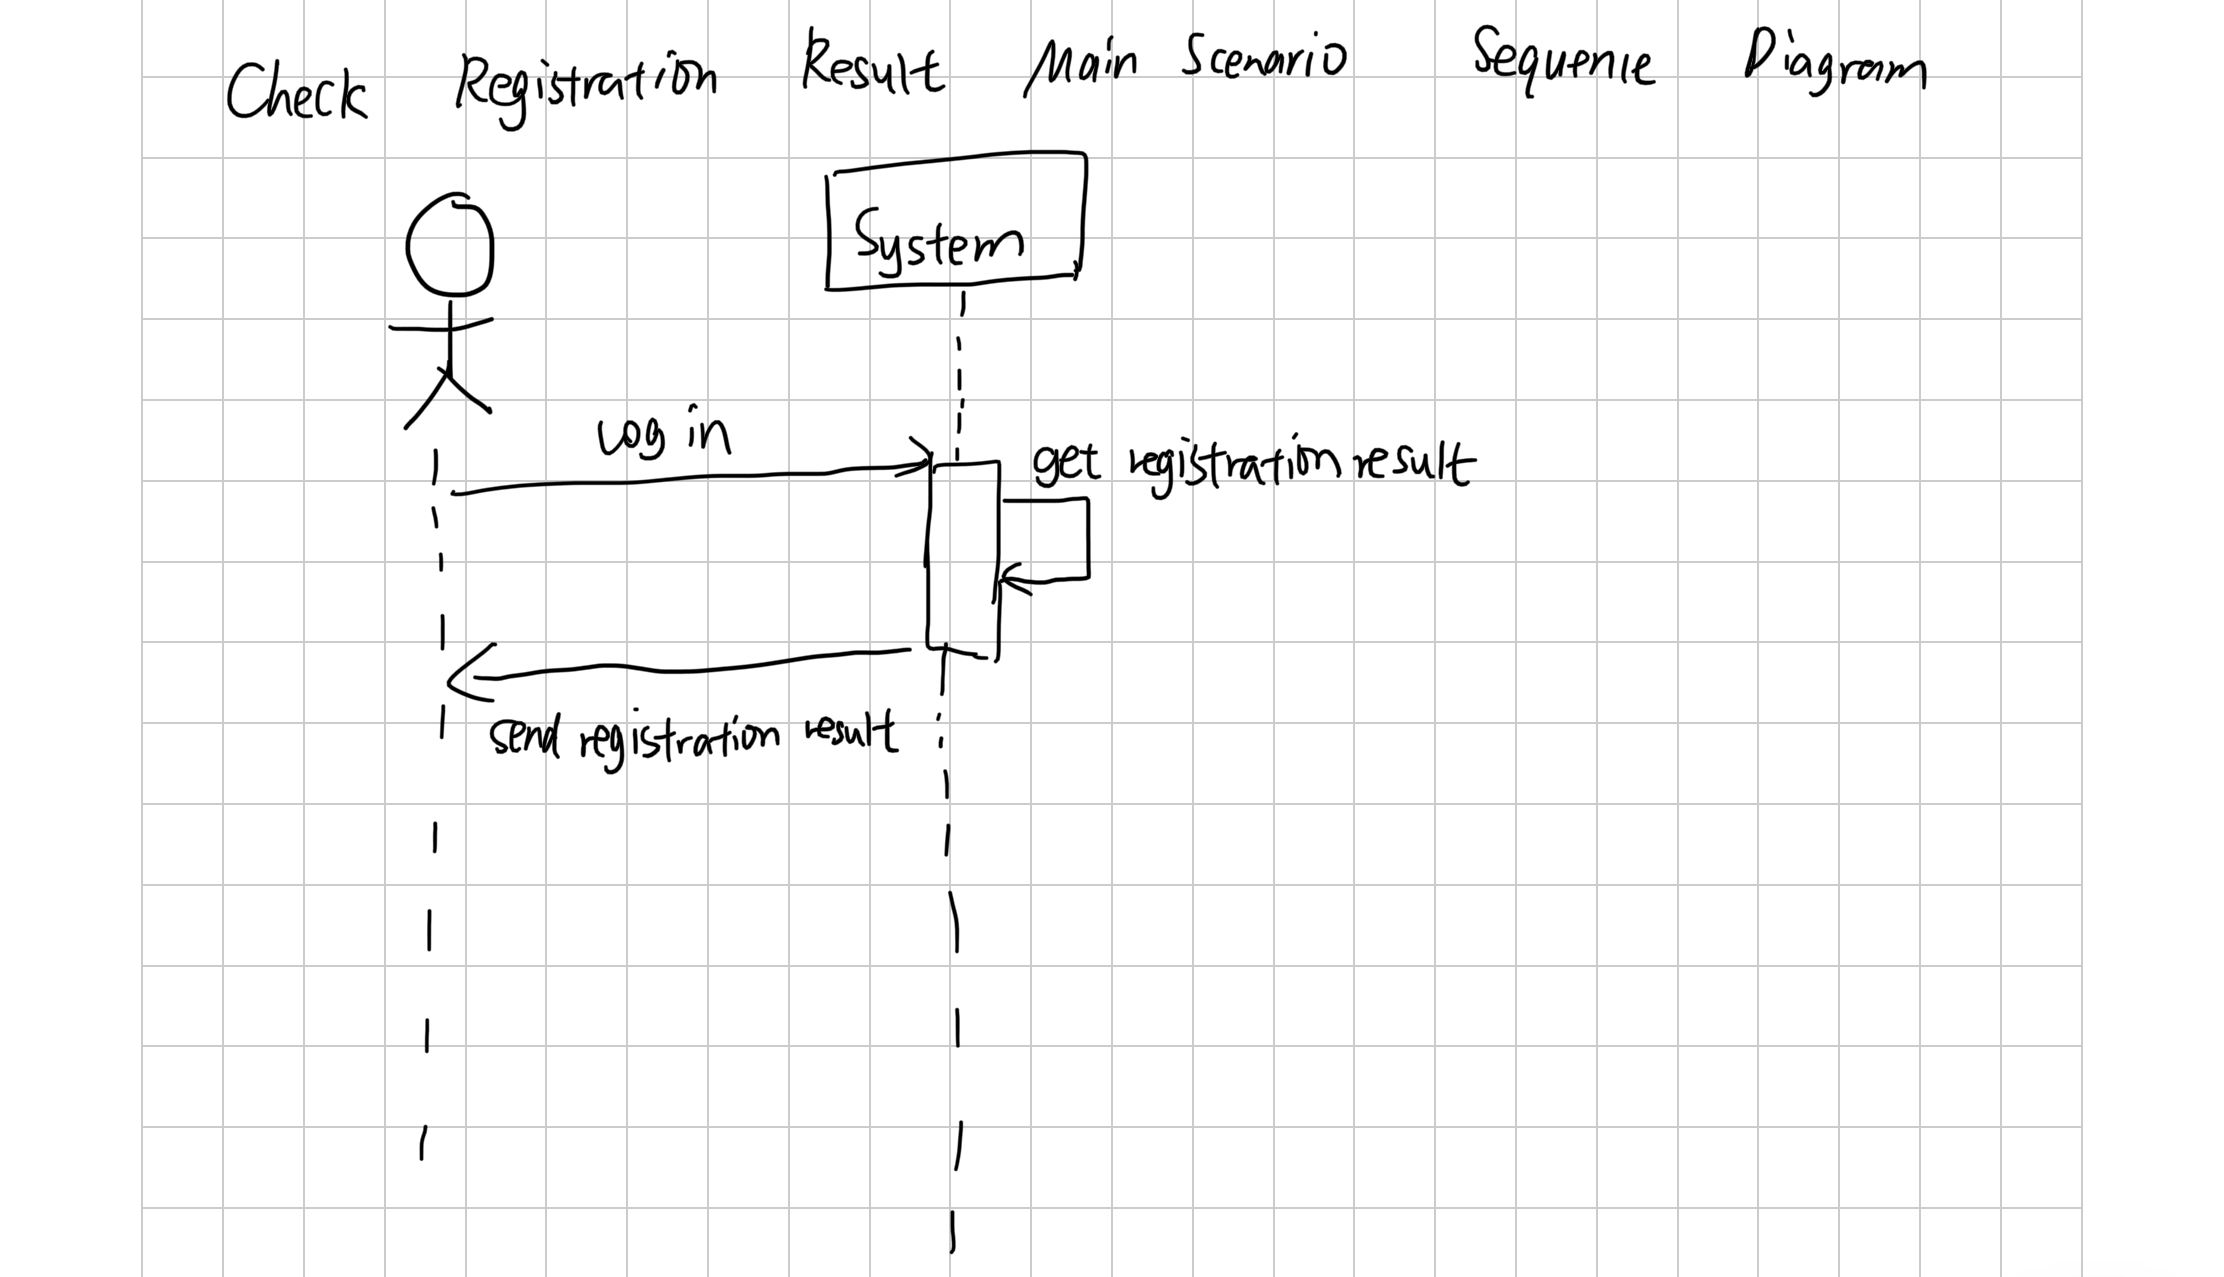 Check Registration Result Main Scenario Sequence Diagram
System
Log in
get registration result
send registration result